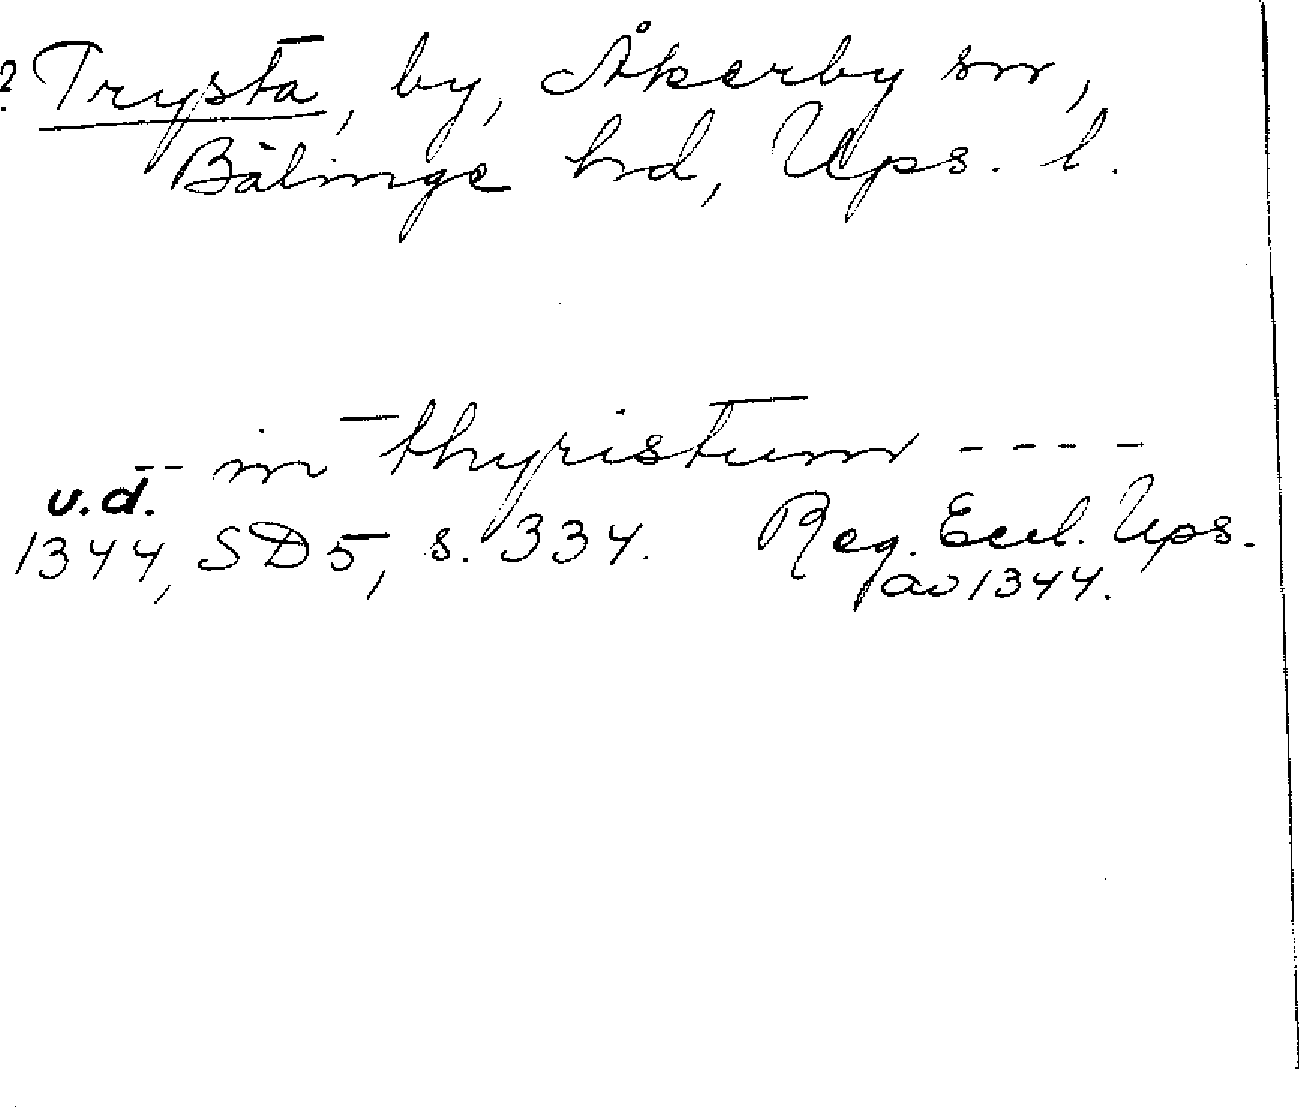 ? Trysta, by, Åkerby sn,
Bälinge hd, Ups. l.
-- in thyristum ----
u.d.
1344, SD 5, s. 334. Reg. Eccl. Ups.
av 1344.